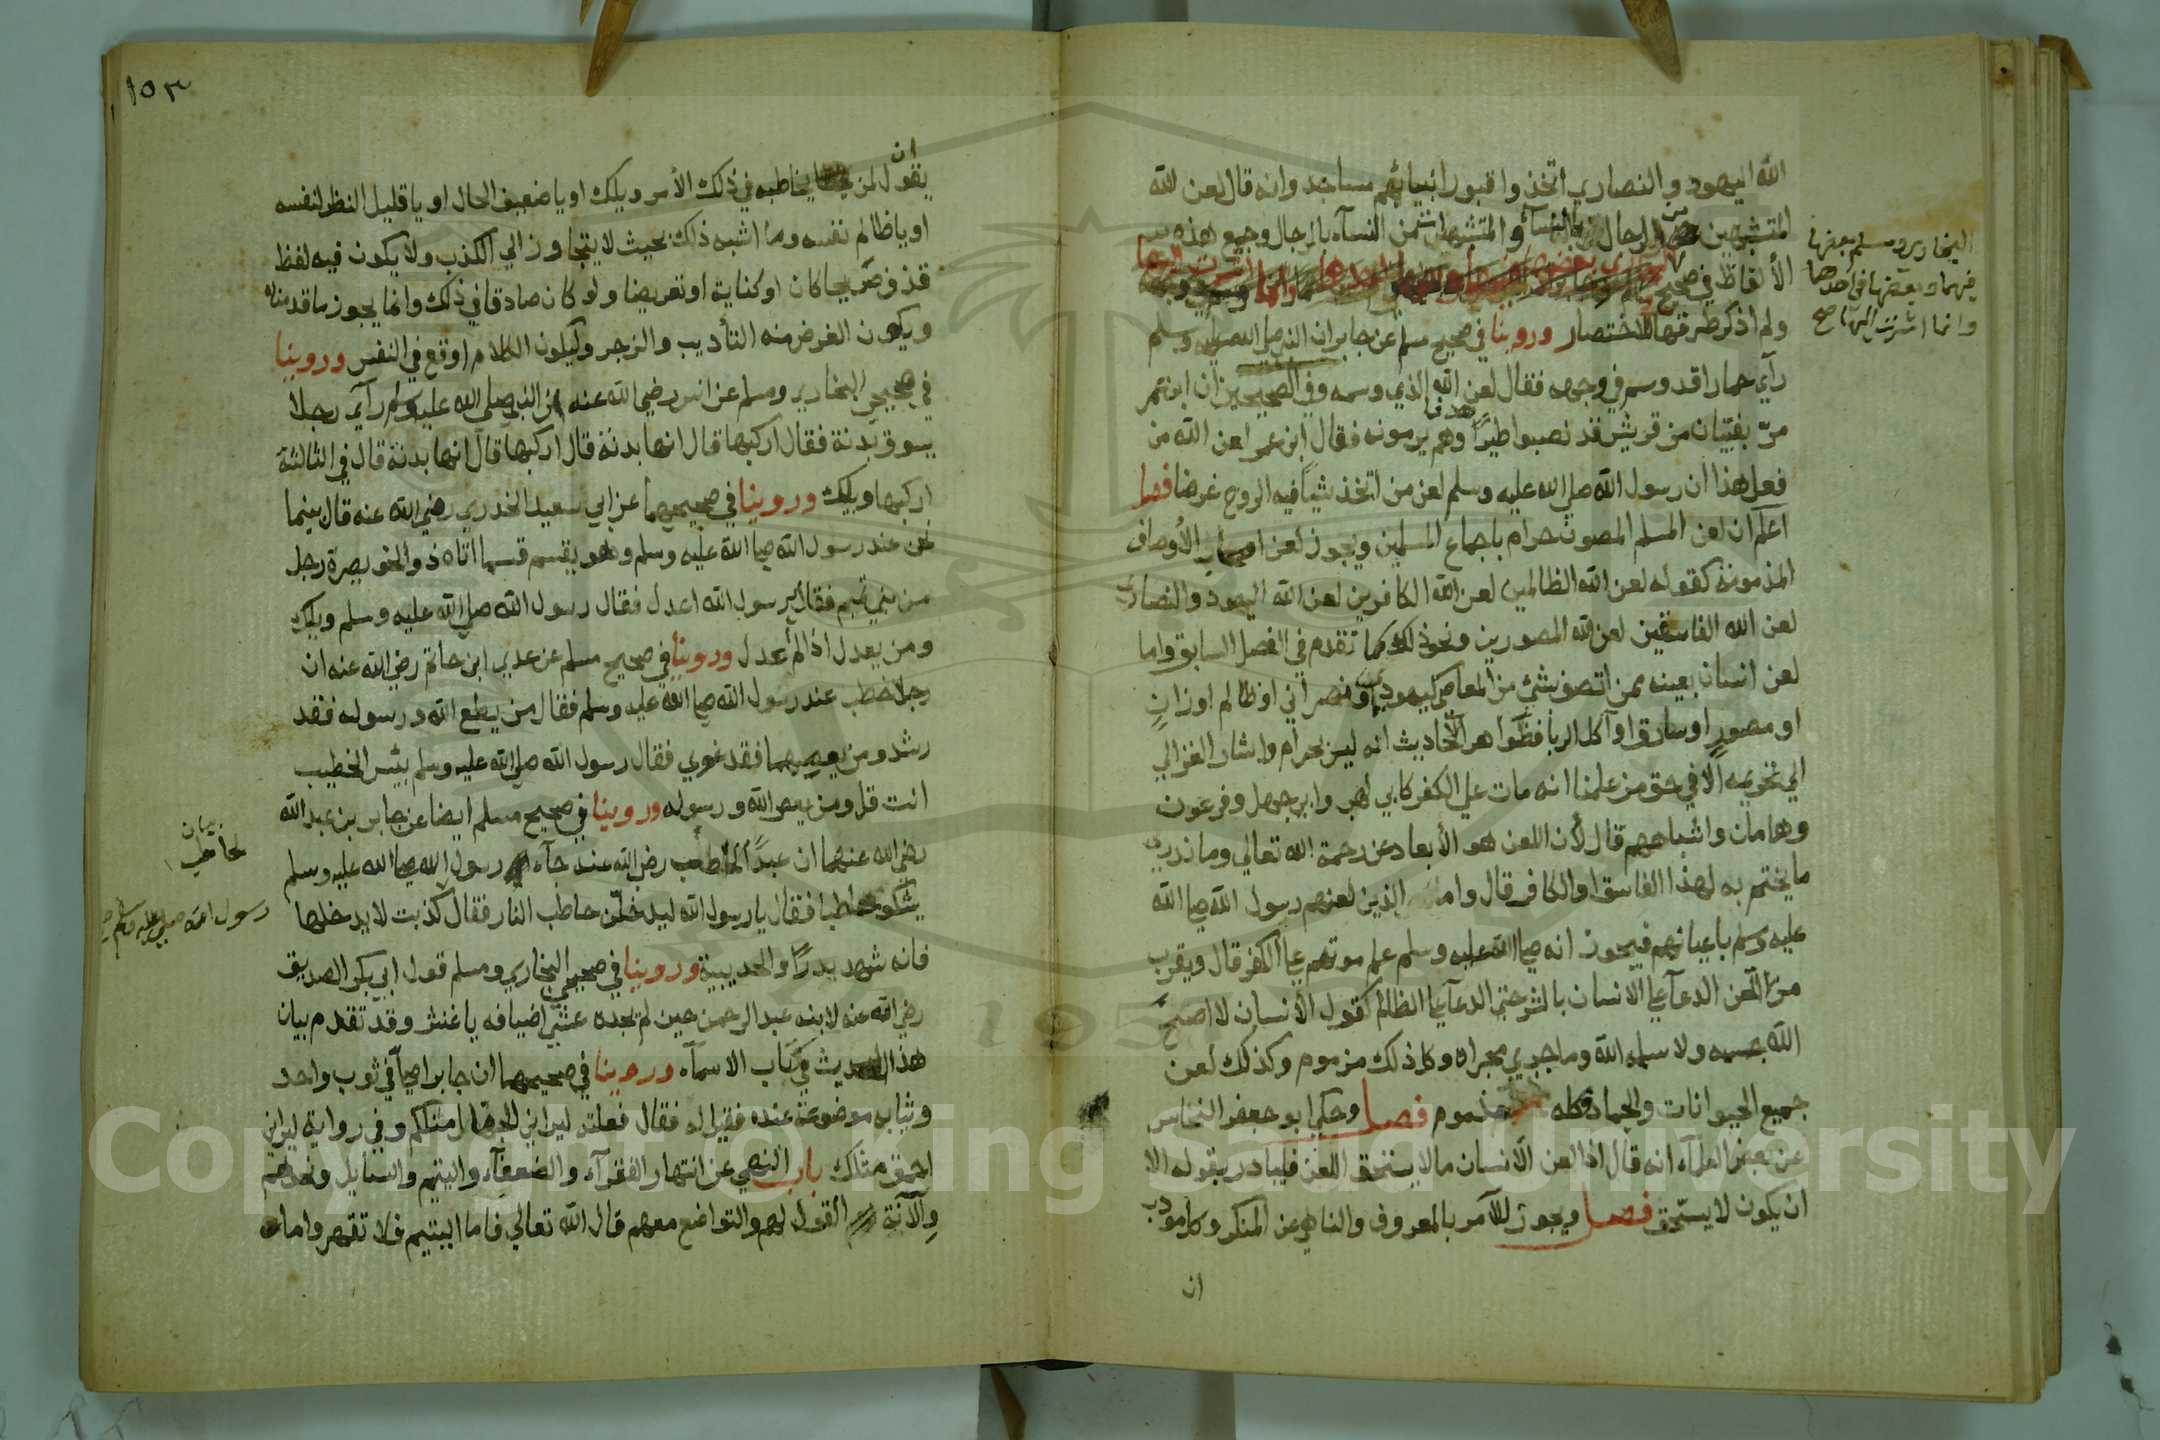 الله اليهود والنصاري اتخذوا قبور انبيائهم مساجد وانه قال لعن الله
المتشبهين من الرجال بالنسآء والمتشبهات من النسآء بالرجال وجميع هذه
الألفاظ في صحيح
البخاري ومسلم بعضها
فيهما وبعضها في احدهما
وانما اشرت اليها صح
ولم اذكر طرقها للاختصار وروينا في صحيح مسلم عن جابر ان النبي صلي الله عليه وسلم
رآي حمارا قد وسم في وجهه فقال لعن الله الذي وسمه وفي الصحيحين ان ابن عمر
مرّ بفتيان من قريش قد نصبوا طيرًا وهم يرمونه فقال ابن عمر لعن الله من
فعل هذا ان رسول الله صلي الله عليه وسلم لعن من اتخذ شيأ فيه الروح غرضا فصل
اعلم ان لعن المسلم المصون حرام باجماع المسلمين ويجوز لعن اصحاب الأوصاف
المذمومة كقوله لعن الله الظالمين لعن الله الكافرين لعن الله اليهود والنصاري
لعن الله الفاسقين لعن الله المصورين ونحو ذلك كما تقدم في الفصل السابق واما
لعن انسان بعينه ممن اتصف بشئ من المعاصي كيهودي او نصراني او ظالم او زانٍ
او مصورٍ او سارق او آكل الربا فظواهر الأحاديث انه ليس بحرام واشار الغزالي
الي تحريمه الا في حق من علمنا انه مات علي الكفر كابي لهب وابي جهل وفرعون
وهامان واشباههم قال لأن اللعن هو الأبعاد عن رحمة الله تعالي وما ندري
ما يختم به لهذا الفاسق او الكافر قال واما الذين لعنهم رسول الله صلي الله
عليه وسلم باعيانهم فيجوز انه صلي الله عليه وسلم علم موتهم علي الكفر قال ويقرب
من اللعن الدعآ علي الانسان بالشر حتي الدعآ علي الظالم كقول الأنسان لا اصحّ
الله جسمه ولا سلمه الله وما جري مجراه وكل ذلك مزموم وكذلك لعن
جميع الحيوانات والجماد وكله مذموم فصل وحكي ابو جعفر النحاس
عن بعض العلمآء انه قال اذا لعن الأنسان مالا يستحق اللعن فليبادر بقوله الا
ان يكون لا يستحق فصل ويجوز للآمر بالمعروف والناهي عن المنكر وكل مودب
ان
١٥٣
ان
يقول لمن يخاطبه في ذلك الأمر ويلك او يا ضعيف الحال او يا قليل النظر لنفسه
او يا ظالم نفسه وما اشبه ذلك بحيث لا يتجاوز الي الكذب ولا يكون فيه لفظ
قذف صريحا كان او كناية او تعريضا ولو كان صادقا في ذلك وانما يجوز ما قدمناه
ويكون الغرض منه التأديب والزجر وليكون الكلام اوقع في النفس وروينا
في صحيحي البخاري ومسلم عن انس رضي الله عنه ان النبي صلي الله عليه وسلم رآي رجلا
يسوق بدنة فقال اركبها قال انها بدنة قال اركبها قال انها بدنة قال في الثالثة
اركبها ويلك وروينا في صحيحيهما عن ابي سعيد الخدري رضي الله عنه قال بينما
نحن عند رسول الله صلي الله عليه وسلم وهو يقسم قسما اتاه ذو الخويصرة رجل
من بني تميم فقال يرسول الله اعدل فقال رسول الله صلي الله عليه وسلم ويلك
ومن يعدل اذا لم أعدل وروينا في صحيح مسلم عن عدي ابن حاتم رضي الله عنه ان
رجلا خطب عند رسول الله صلي الله عليه وسلم فقال من يطع الله ورسوله فقد
رشد ومن يعصهما فقد غوي فقال رسول الله صلي الله عليه وسلم بئس الخطيب
انت قل ومن يعص الله ورسوله وروينا في صحيح مسلم ايضا عن جابر بن عبد الله
رضي الله عنهما ان عبدًا لحاطب رضي الله عنه جآء رسول الله صلي الله عليه وسلم
يشكو حاطبا فقال يا رسول الله ليدخلن حاطب النار فقال كذبت لا يدخلها
رسول الله صلي الله عليه وسلم صح
فانه شهد بدرًا والحديبية وروينا في صحيحي البخاري ومسلم قول ابي بكر الصديق
رضي الله عنه لابنه عبد الرحمن حين لم يجده عشّي اضيافه يا غنثر وقد تقدم بيان
هذا الحديث في كتاب الاسمآء وروينا في صحيحيهما ان جابرا صلّي في ثوب واحد
وثيابه موضوعة عنده فقيل له فقال فعلته ليراني الجهال مثلكم وفي رواية ليراني
احمق مثلك باب النهي عن انتهار الفقرآء والضعفآء واليتيم والسايل ونحوهم
وإلانة القول لهم والتواضع معهم قال الله تعالي فاما اليتيم فلا تقهر واما
Copyright © King Saud University